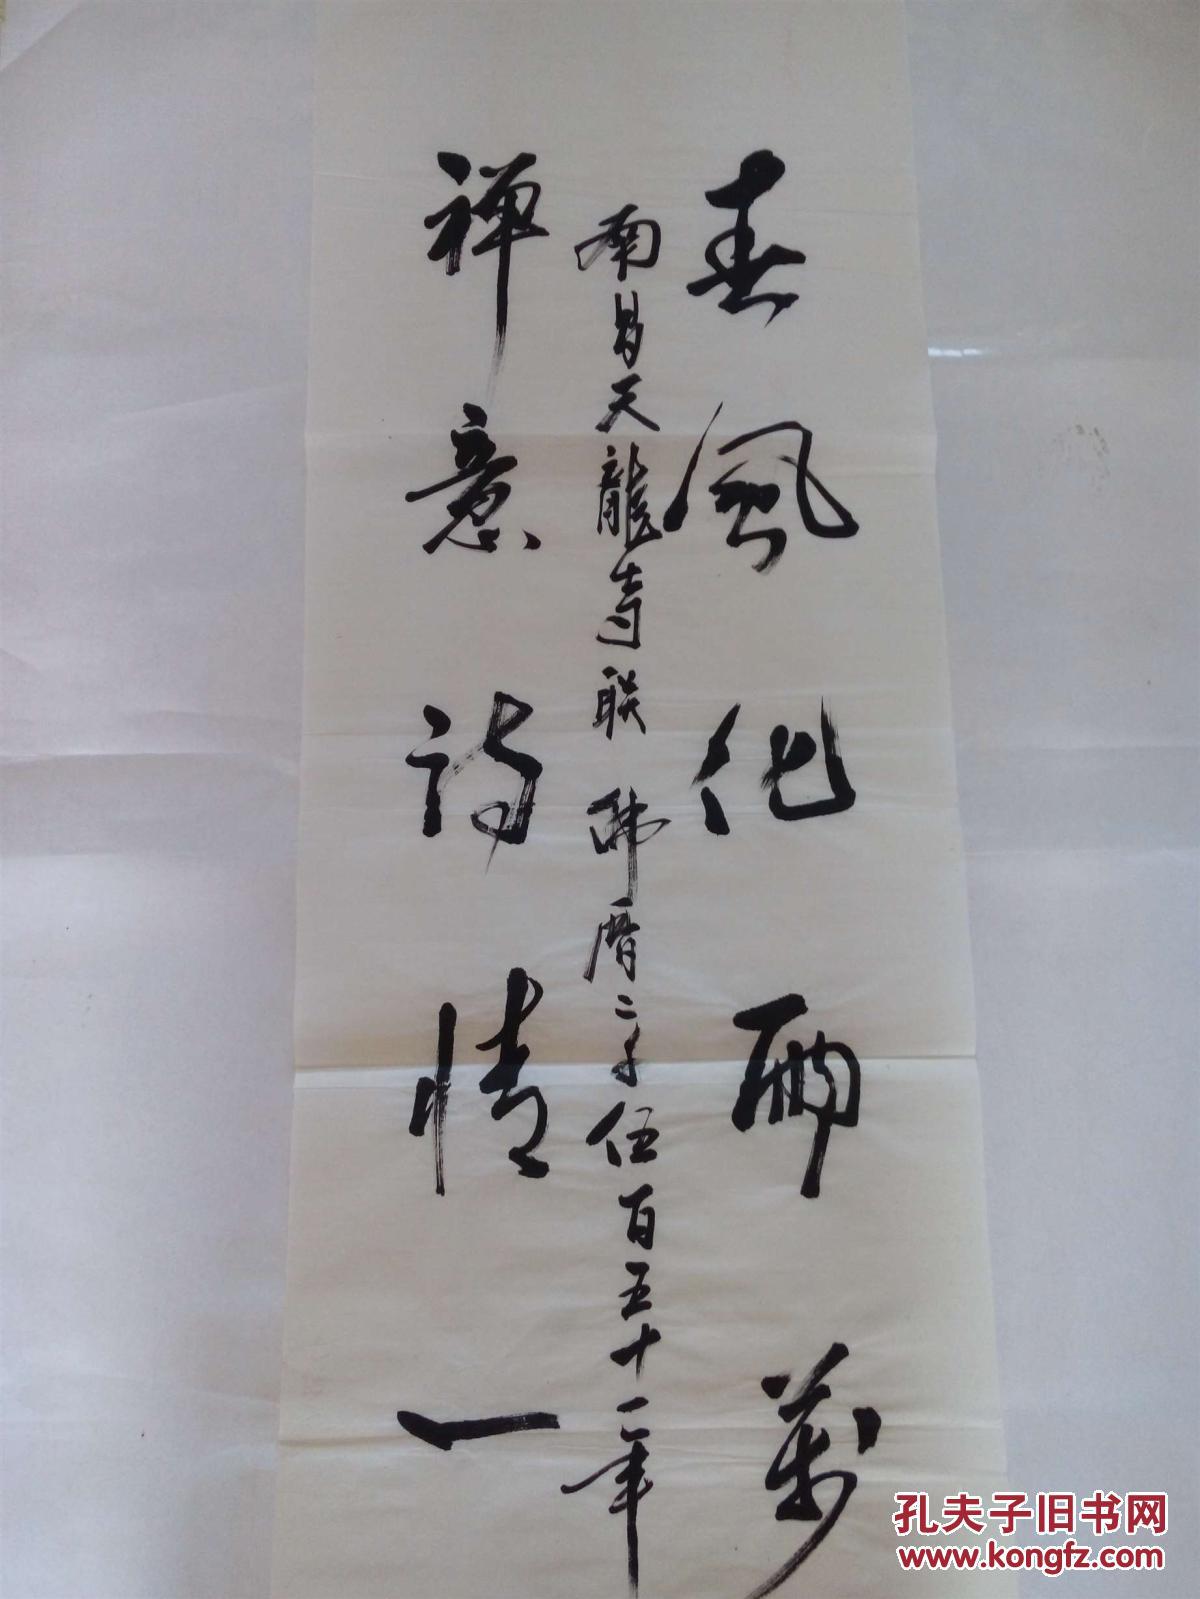 春風化雨萬
南昌天龍寺联 佛曆二千伍百五十二年
禅意诗情一
孔夫子旧书网
www.kongfz.com